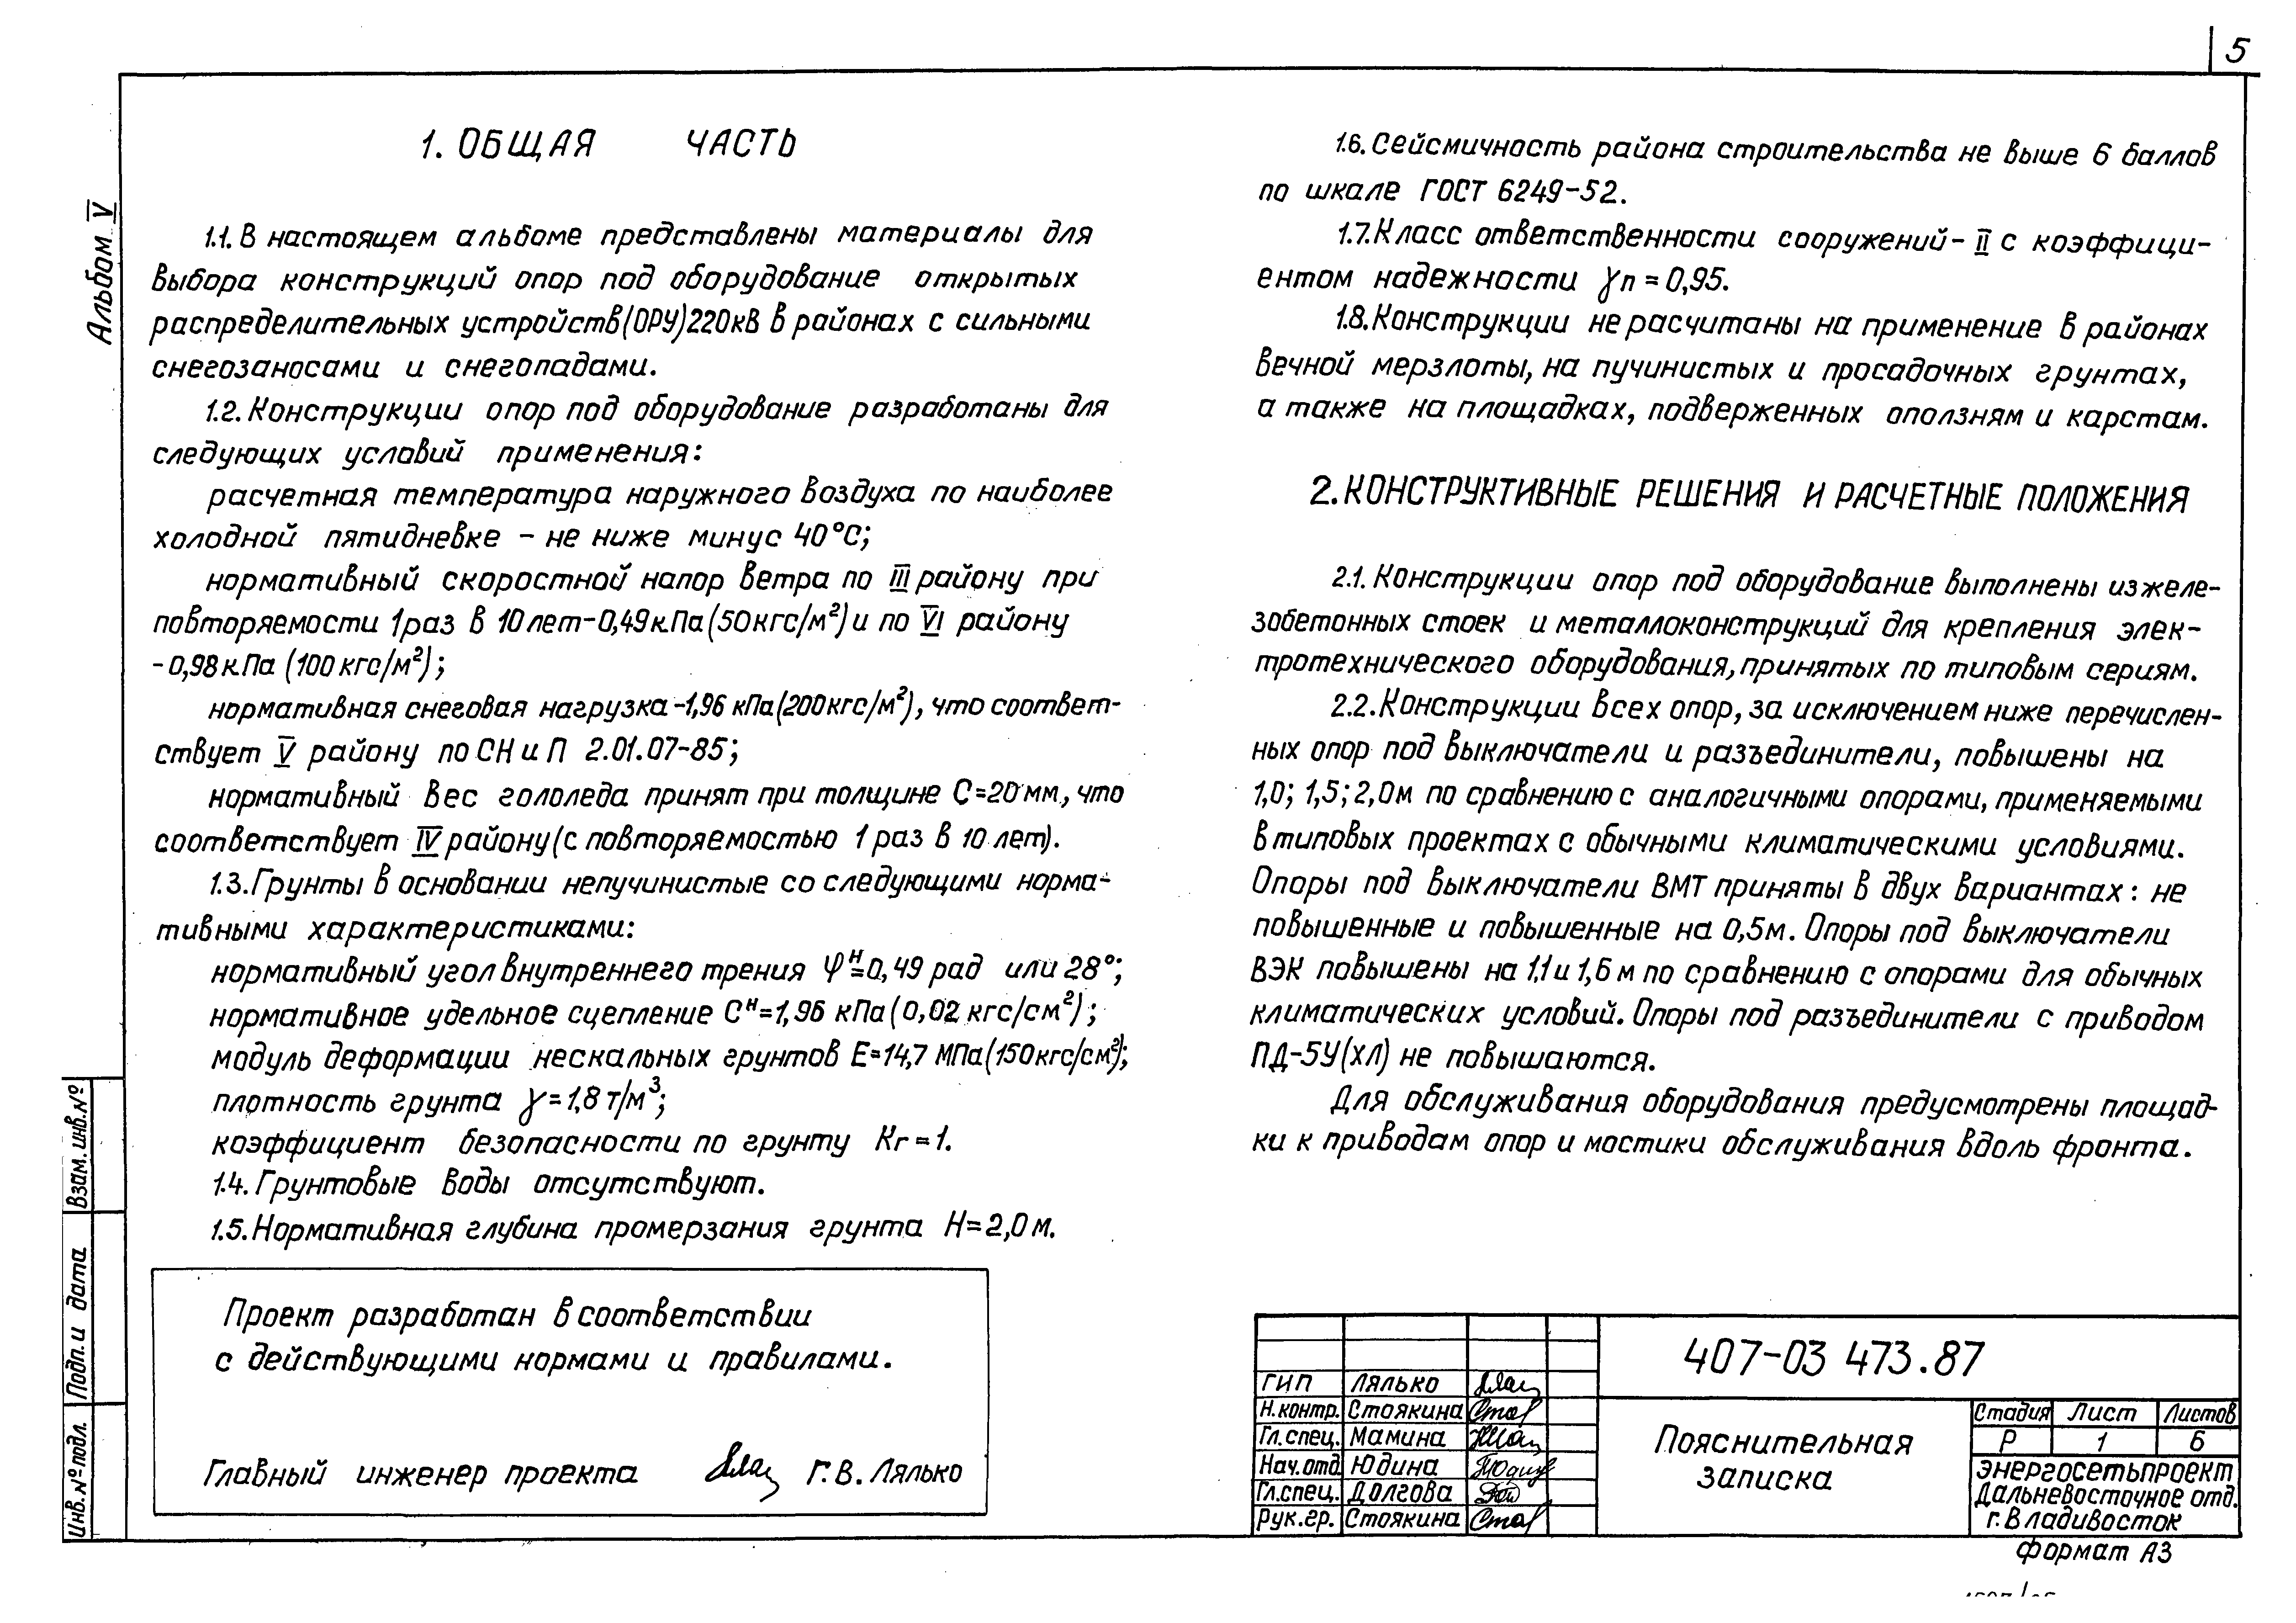 5
Альбом V
1. ОБЩАЯ ЧАСТЬ
1.1. В настоящем альбоме представлены материалы для
выбора конструкций опор под оборудование открытых
распределительных устройств (ОРУ) 220кВ в районах с сильными
снегозаносами и снегопадами.
1.2. Конструкции опор под оборудование разработаны для
следующих условий применения:
расчетная температура наружного воздуха по наиболее
холодной пятидневке - не ниже минус 40°С;
нормативный скоростной напор ветра по III району при
повторяемости 1 раз в 10 лет-0,49 кПа (50 кгс/м²) и по VI району
-0,98 кПа (100 кгс/м²);
нормативная снеговая нагрузка-1,96 кПа (200 кгс/м²), что соответ-
ствует V району по СНиП 2.01.07-85;
нормативный вес гололеда принят при толщине С=20 мм, что
соответствует IV району (с повторяемостью 1 раз в 10 лет).
1.3. Грунты в основании непучинистые со следующими норма-
тивными характеристиками:
нормативный угол внутреннего трения φᴴ=0,49 рад или 28°;
нормативное удельное сцепление Сᴴ=1,96 кПа (0,02 кгс/см²);
модуль деформации нескальных грунтов Е=14,7 МПа (150кгс/см²);
плотность грунта γ=1,8 т/м³;
коэффициент безопасности по грунту Кг=1.
1.4. Грунтовые воды отсутствуют.
1.5. Нормативная глубина промерзания грунта Н=2,0 м.
Проект разработан в соответствии
с действующими нормами и правилами.
Главный инженер проекта Г.В. Лялько
1.6. Сейсмичность района строительства не выше 6 баллов
по шкале ГОСТ 6249-52.
1.7. Класс ответственности сооружений- II с коэффици-
ентом надежности γп = 0,95.
1.8. Конструкции не расчитаны на применение в районах
вечной мерзлоты, на пучинистых и просадочных грунтах,
а также на площадках, подверженных оползням и карстам.
2. КОНСТРУКТИВНЫЕ РЕШЕНИЯ И РАСЧЕТНЫЕ ПОЛОЖЕНИЯ
2.1. Конструкции опор под оборудование выполнены из желе-
зобетонных стоек и металлоконструкций для крепления элек-
тротехнического оборудования, принятых по типовым сериям.
2.2. Конструкции всех опор, за исключением ниже перечислен-
ных опор под выключатели и разъединители, повышены на
1,0; 1,5; 2,0м по сравнению с аналогичными опорами, применяемыми
в типовых проектах с обычными климатическими условиями.
Опоры под выключатели ВМТ приняты в двух вариантах: не
повышенные и повышенные на 0,5м. Опоры под выключатели
ВЭК повышены на 1,1 и 1,6 м по сравнению с опорами для обычных
климатических условий. Опоры под разъединители с приводом
ПД-5У(ХЛ) не повышаются.
Для обслуживания оборудования предусмотрены площад-
ки к приводам опор и мостики обслуживания вдоль фронта.
Взам. инв.№
Подп. и дата
Инв.№ подл.
407-03 473.87
ГИП Лялько
Н.контр. Стоякина
Гл.спец. Мамина
Нач.отд. Юдина
Гл.спец. Долгова
Рук.гр. Стоякина
Пояснительная
записка
Стадия Лист Листов
Р 1 6
Энергосетьпроект
Дальневосточное отд.
г. Владивосток
формат А3